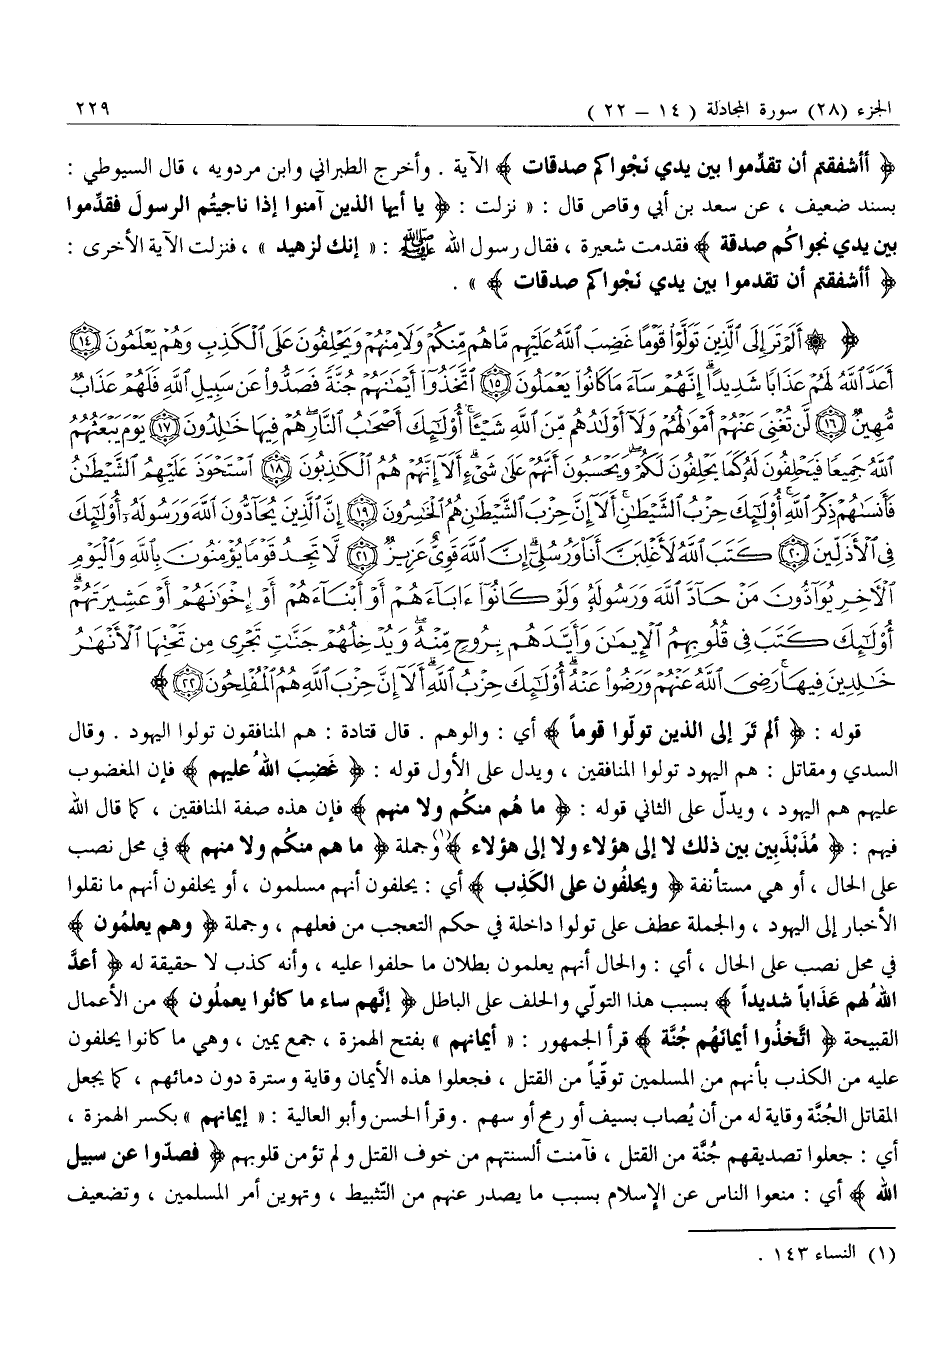 الجزء (٢٨) سورة المجادلة ( ١٤ – ٢٢ ) ٢٢٩
﴿ أأشفقتم أن تقدِّموا بين يدي نَجْواكم صدقات ﴾ الآية . وأخرج الطبراني وابن مردويه ، قال السيوطي :
بسند ضعيف ، عن سعد بن أبي وقاص قال : « نزلت : ﴿ يا أيها الذين آمنوا إذا ناجيتُم الرسولَ فقدِّموا
بين يدي نجواكُم صدقة ﴾ فقدمت شعيرة ، فقال رسول الله ﷺ : « إنك لزهيد » ، فنزلت الآية الأخرى :
﴿ أأشفقتم أن تقدموا بين يدي نَجْواكم صدقات ﴾ » .
﴿ ۞ أَلَمْ تَرَ إِلَى ٱلَّذِينَ تَوَلَّوْا۟ قَوْمًا غَضِبَ ٱللَّهُ عَلَيْهِم مَّا هُم مِّنكُمْ وَلَا مِنْهُمْ وَيَحْلِفُونَ عَلَى ٱلْكَذِبِ وَهُمْ يَعْلَمُونَ ۝١٤
أَعَدَّ ٱللَّهُ لَهُمْ عَذَابًا شَدِيدًا ۖ إِنَّهُمْ سَآءَ مَا كَانُوا۟ يَعْمَلُونَ ۝١٥ ٱتَّخَذُوٓا۟ أَيْمَٰنَهُمْ جُنَّةً فَصَدُّوا۟ عَن سَبِيلِ ٱللَّهِ فَلَهُمْ عَذَابٌ
مُّهِينٌ ۝١٦ لَّن تُغْنِىَ عَنْهُمْ أَمْوَٰلُهُمْ وَلَآ أَوْلَٰدُهُم مِّنَ ٱللَّهِ شَيْـًٔا ۚ أُو۟لَٰٓئِكَ أَصْحَٰبُ ٱلنَّارِ ۖ هُمْ فِيهَا خَٰلِدُونَ ۝١٧ يَوْمَ يَبْعَثُهُمُ
ٱللَّهُ جَمِيعًا فَيَحْلِفُونَ لَهُۥ كَمَا يَحْلِفُونَ لَكُمْ ۖ وَيَحْسَبُونَ أَنَّهُمْ عَلَىٰ شَىْءٍ ۚ أَلَآ إِنَّهُمْ هُمُ ٱلْكَٰذِبُونَ ۝١٨ ٱسْتَحْوَذَ عَلَيْهِمُ ٱلشَّيْطَٰنُ
فَأَنسَىٰهُمْ ذِكْرَ ٱللَّهِ ۚ أُو۟لَٰٓئِكَ حِزْبُ ٱلشَّيْطَٰنِ ۚ أَلَآ إِنَّ حِزْبَ ٱلشَّيْطَٰنِ هُمُ ٱلْخَٰسِرُونَ ۝١٩ إِنَّ ٱلَّذِينَ يُحَآدُّونَ ٱللَّهَ وَرَسُولَهُۥٓ أُو۟لَٰٓئِكَ
فِى ٱلْأَذَلِّينَ ۝٢٠ كَتَبَ ٱللَّهُ لَأَغْلِبَنَّ أَنَا۠ وَرُسُلِىٓ ۚ إِنَّ ٱللَّهَ قَوِىٌّ عَزِيزٌ ۝٢١ لَّا تَجِدُ قَوْمًا يُؤْمِنُونَ بِٱللَّهِ وَٱلْيَوْمِ
ٱلْءَاخِرِ يُوَآدُّونَ مَنْ حَآدَّ ٱللَّهَ وَرَسُولَهُۥ وَلَوْ كَانُوٓا۟ ءَابَآءَهُمْ أَوْ أَبْنَآءَهُمْ أَوْ إِخْوَٰنَهُمْ أَوْ عَشِيرَتَهُمْ ۚ
أُو۟لَٰٓئِكَ كَتَبَ فِى قُلُوبِهِمُ ٱلْإِيمَٰنَ وَأَيَّدَهُم بِرُوحٍ مِّنْهُ ۖ وَيُدْخِلُهُمْ جَنَّٰتٍ تَجْرِى مِن تَحْتِهَا ٱلْأَنْهَٰرُ
خَٰلِدِينَ فِيهَا ۚ رَضِىَ ٱللَّهُ عَنْهُمْ وَرَضُوا۟ عَنْهُ ۚ أُو۟لَٰٓئِكَ حِزْبُ ٱللَّهِ ۚ أَلَآ إِنَّ حِزْبَ ٱللَّهِ هُمُ ٱلْمُفْلِحُونَ ۝٢٢ ﴾
قوله : ﴿ ألم تَرَ إلى الذين تولّوا قوماً ﴾ أي : والوهم . قال قتادة : هم المنافقون تولوا اليهود . وقال
السدي ومقاتل : هم اليهود تولوا المنافقين ، ويدل على الأول قوله : ﴿ غَضِبَ اللهُ عليهم ﴾ فإن المغضوب
عليهم هم اليهود ، ويدلّ على الثاني قوله : ﴿ ما هُم منكُم ولا منهم ﴾ فإن هذه صفة المنافقين ، كما قال الله
فيهم : ﴿ مُذَبْذَبِين بين ذلك لا إلى هؤلاء ولا إلى هؤلاء ﴾(١) وجملة ﴿ ما هم منكُم ولا منهم ﴾ في محل نصب
على الحال ، أو هي مستأنفة ﴿ ويحلفُون على الكَذِب ﴾ أي : يحلفون أنهم مسلمون ، أو يحلفون أنهم ما نقلوا
الأخبار إلى اليهود ، والجملة عطف على تولوا داخلة في حكم التعجب من فعلهم ، وجملة ﴿ وهم يعلمُون ﴾
في محل نصب على الحال ، أي : والحال أنهم يعلمون بطلان ما حلفوا عليه ، وأنه كذب لا حقيقة له ﴿ أعدَّ
اللهُ لهم عَذَاباً شديداً ﴾ بسبب هذا التولّي والحلف على الباطل ﴿ إنَّهم ساء ما كانُوا يعملُون ﴾ من الأعمال
القبيحة ﴿ اتَّخذُوا أيمانَهُم جُنَّة ﴾ قرأ الجمهور : « أيمانهم » بفتح الهمزة ، جمع يمين ، وهي ما كانوا يحلفون
عليه من الكذب بأنهم من المسلمين توقّياً من القتل ، فجعلوا هذه الأيمان وقاية وسترة دون دمائهم ، كما يجعل
المقاتل الجُنَّة وقاية له من أن يُصاب بسيف أو رمح أو سهم . وقرأ الحسن وأبو العالية : « إيمانهم » بكسر الهمزة ،
أي : جعلوا تصديقهم جُنَّة من القتل ، فآمنت ألسنتهم من خوف القتل ولم تؤمن قلوبهم ﴿ فصدّوا عن سبيل
الله ﴾ أي : منعوا الناس عن الإسلام بسبب ما يصدر عنهم من التّثبيط ، وتهوين أمر المسلمين ، وتضعيف
(١) النساء ١٤٣ .